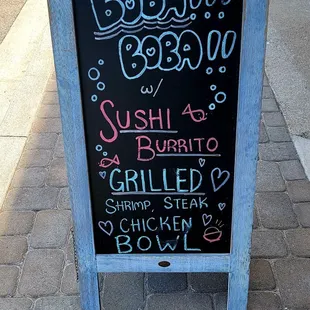 BOBA!!!
BOBA!!
w/
SUSHI
BURRITO
GRILLED
SHRIMP, STEAK
CHICKEN
BOWL